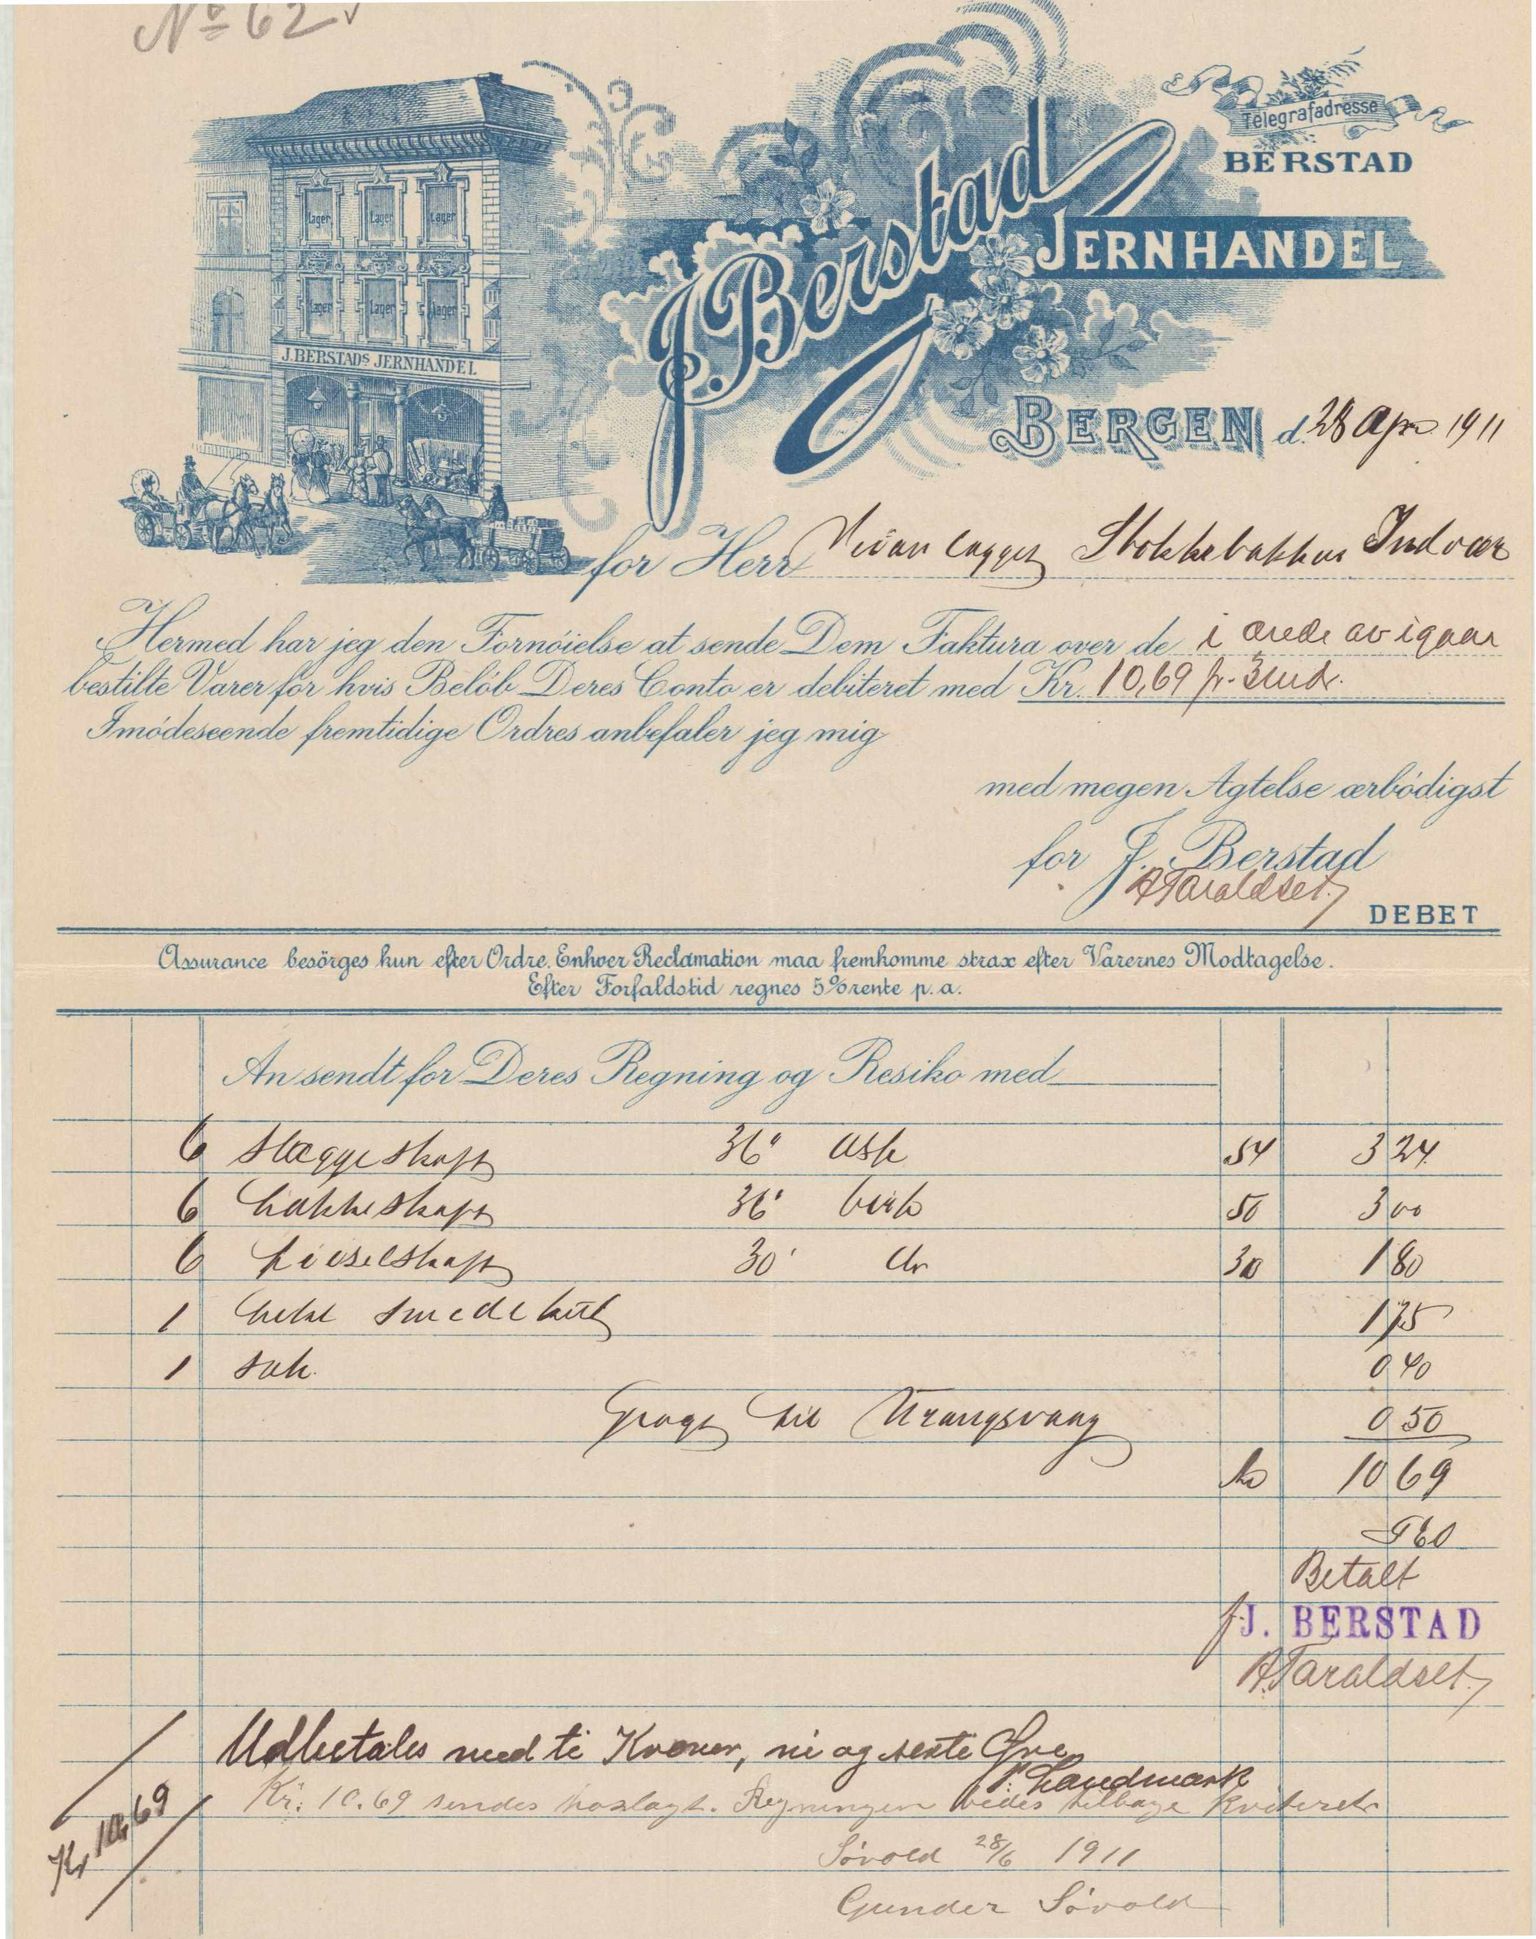 No 62
Telegrafadresse
BERSTAD
J. Berstad
JERNHANDEL
Lager Lager Lager
Lager Lager Lager
J. BERSTADS JERNHANDEL
BERGEN d. 28 Apr 1911
for Herr Veianlægget Stokkebakken Indvær
Hermed har jeg den Fornöielse at sende Dem Faktura over de i
bestilte Varer for hvis Belöb Deres Conto er debiteret med Kr. 10,69 pr. 3 md.
Imödeseende fremtidige Ordres anbefaler jeg mig
med megen Agtelse ærbödigst
for J. Berstad
A Taraldset
DEBET
Assurance besörges kun efter Ordre. Enhver Reclamation maa fremkomme strax efter Varernes Modtagelse.
Efter Forfaldstid regnes 5% rente p. a.
An sendt for Deres Regning og Resiko med
6 slæggeskaft 36" ask 54 3 24
6 hakkeskaft 36" birk 50 3 00
6 feiselskaft 30" do 30 1 80
1 hekt smedekul 1 75
1 sæk 0 40
Fragt til Vrangsvaag 0 50
Kr 10 69
Betalt
f. J. BERSTAD
A. Taraldset
Udbetales med ti Kroner, ni og sexti Øre
P. Landmark
Kr. 10.69
Kr. 10.69 sendes hoslagt. Regningen bedes tilbage kvitteret
Søvold 28/6 1911
Gunder Søvold